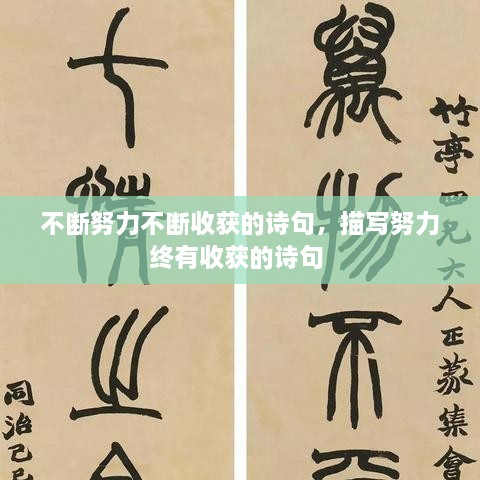 不断努力不断收获的诗句，描写努力
终有收获的诗句
竹亭四兄大人正篆集會
萬物不
七情之
同治己巳